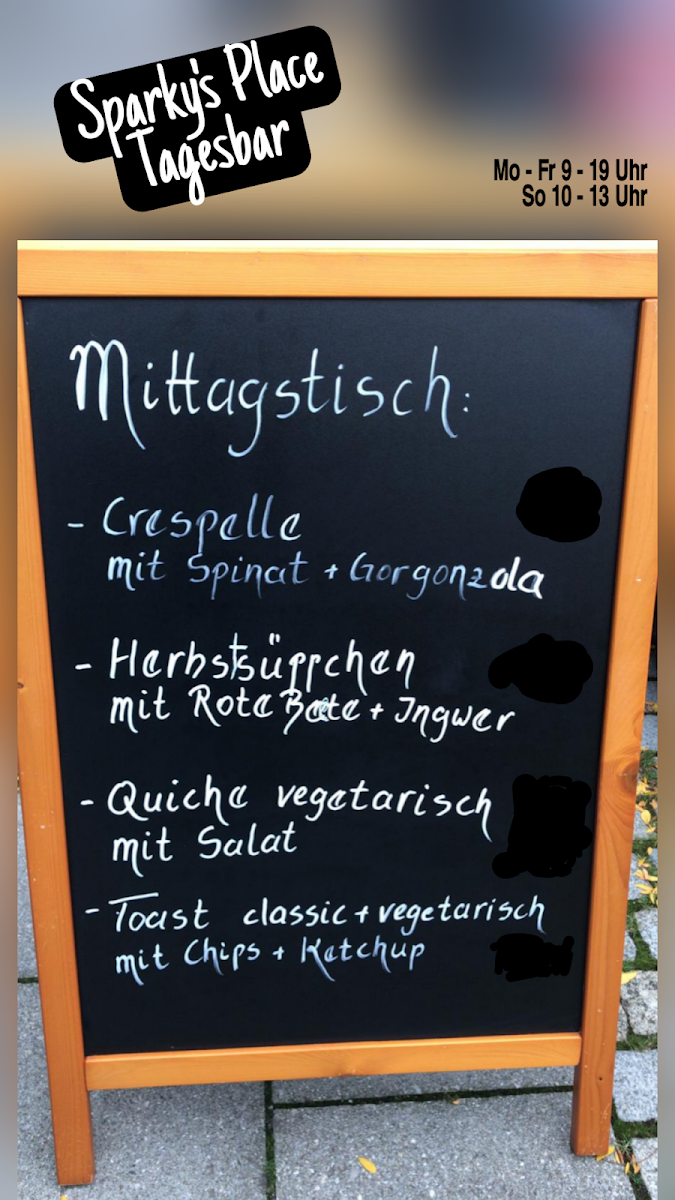 Sparky's Place
Tagesbar
Mo - Fr 9 - 19 Uhr
So 10 - 13 Uhr
Mittagstisch:
- Crespelle
mit Spinat + Gorgonzola
- Herbstsüppchen
mit Rote Beete + Ingwer
- Quiche vegetarisch
mit Salat
- Toast classic + vegetarisch
mit Chips + Ketchup